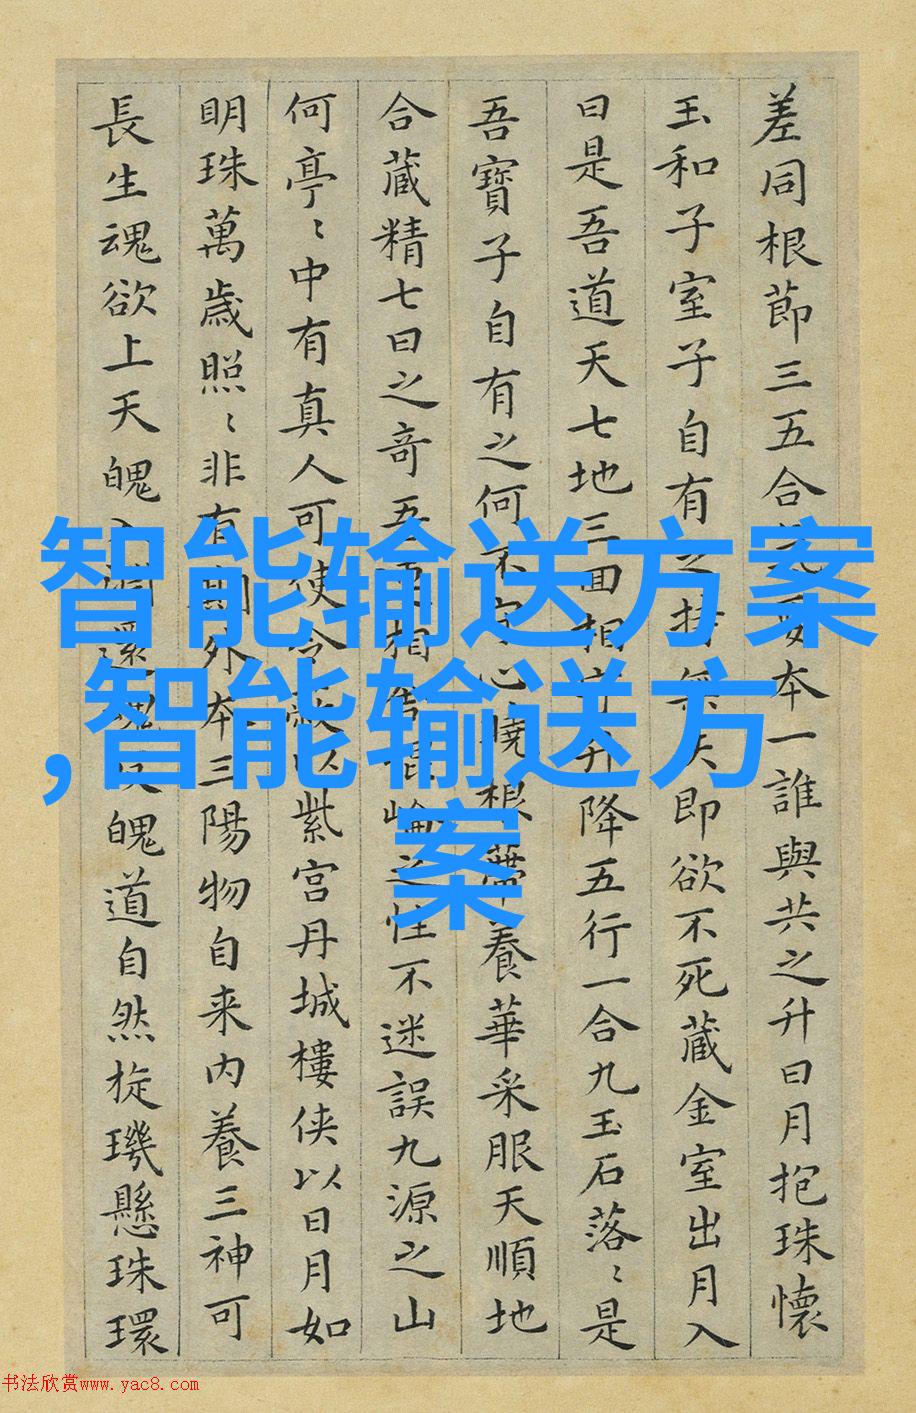 差同根節三五合
本一誰與共之升日月抱珠懷
玉和子室子自有之持無失即欲不死藏金室出月入
日是吾道天七地三回相
升降五行一合九玉石落〻是
吾寶子自有之何不守心曉根蒂養華采服天順地
合藏精七日之奇吾
相
之性不迷誤九源之山
何亭〻中有真人可使令
以紫宮丹城樓俠以日月如
明珠萬歲照〻非有期外本三陽物自来内養三神可
長生魂欲上天魄入淵還魂
魄道自然旋璣懸珠環
智能输送方案
,智能输送方
案
书法欣赏www.yac8.com